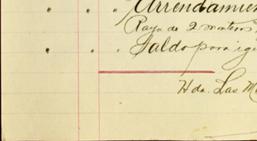 " " " Arrendamien
Raya de 2 
" " Saldo para igu
Hda. Las M